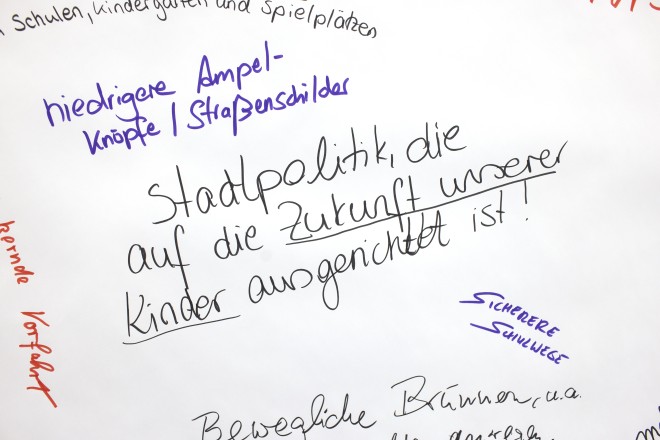 Schulen, Kindergärten und Spielplätzen
niedrigere Ampel-
Knöpfe / Straßenschilder
Stadtpolitik, die
auf die Zukunft unserer
Kinder ausgerichtet ist!
Vorfahrt
SICHERERE
SCHULWEGE
Bewegliche Brunnen, u.a.